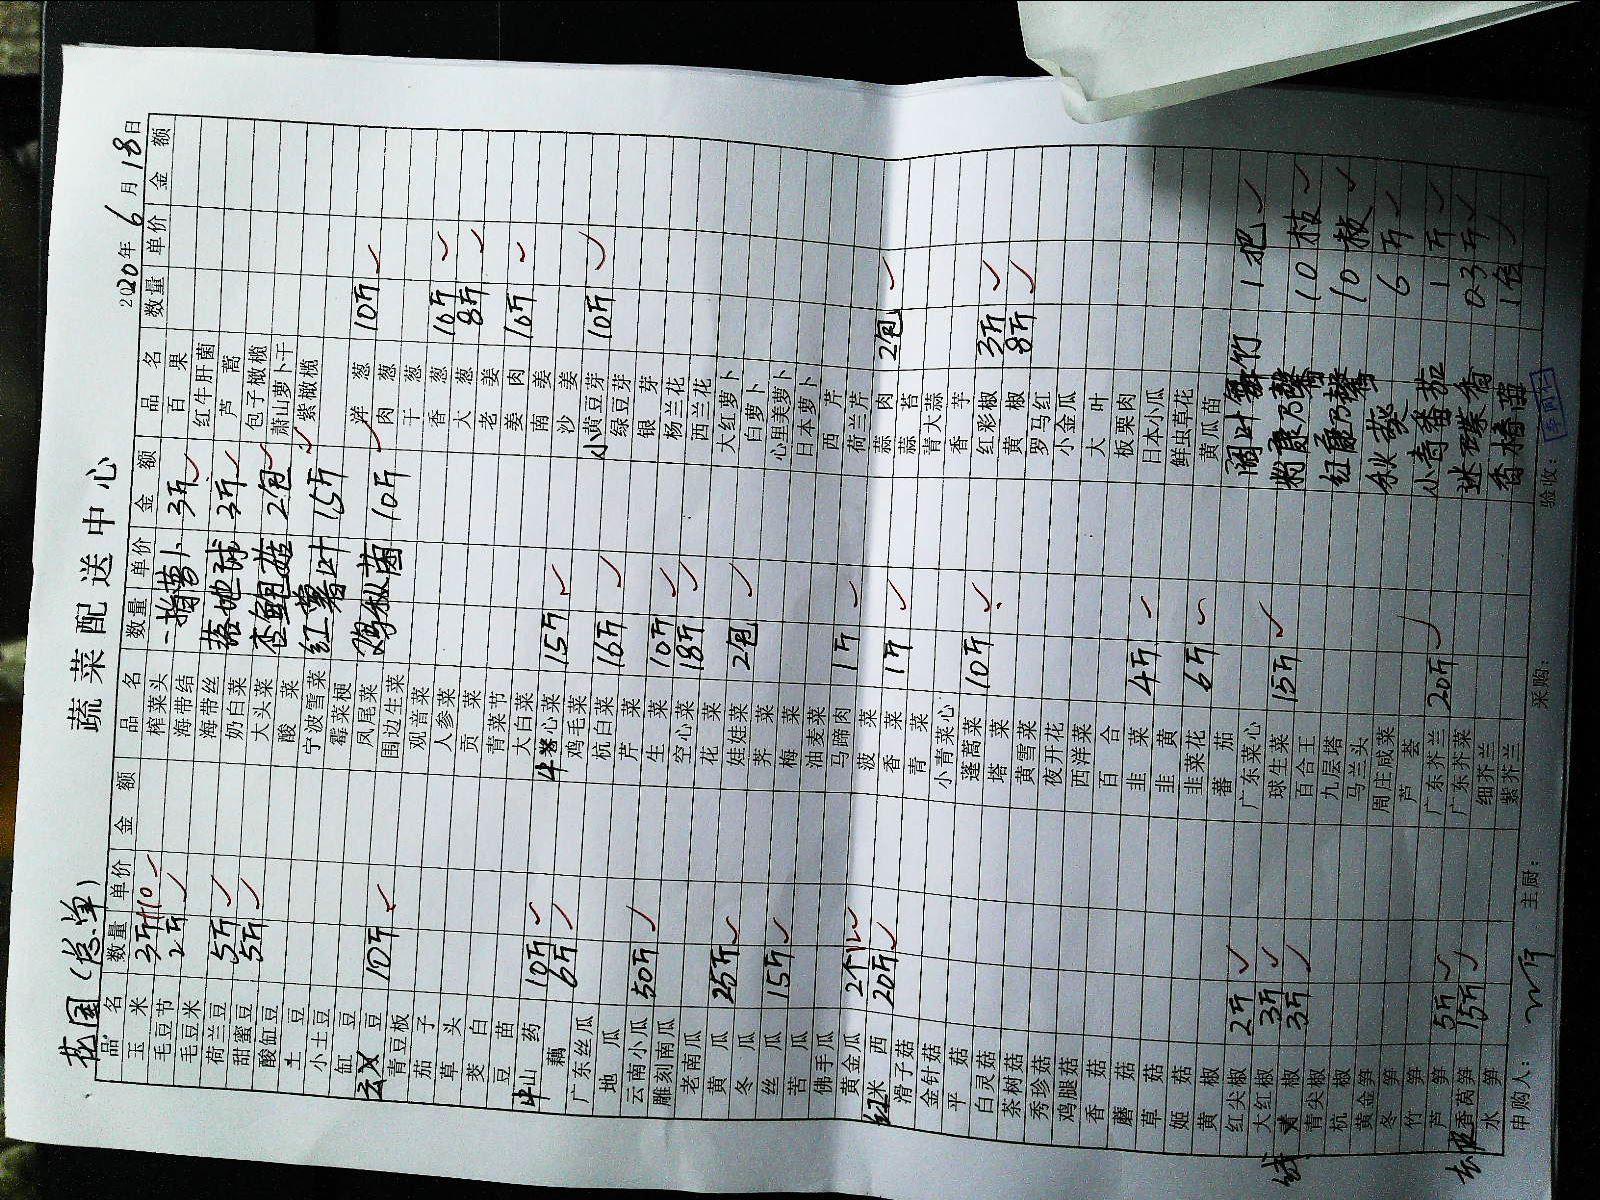 蔬菜配送中心
花园(总单)
2020年6月18日
品名 数量 单价 金额 品名 数量 单价 金额 品名 数量 单价 金额
玉米 3斤
毛豆节 2斤
毛豆米
荷兰豆 5斤
甜蜜豆 5斤
酸缸豆
土豆
小土豆
缸豆
豆 10斤
青豆板
茄子
草头
茭白
豆苗
牛山药 10斤
藕 6斤
广东丝瓜
地瓜
云南小瓜 50斤
雕刻南瓜
老南瓜
黄瓜 25斤
冬瓜
丝瓜 15斤
苦瓜
佛手瓜
黄金瓜 2个
红米西 20斤
滑子菇
金针菇
平菇
白灵菇
茶树菇
秀珍菇
鸡腿菇
香菇
蘑菇
草菇
姬菇
黄椒
红尖椒 2斤
大红椒 3斤
线椒 3斤
青尖椒
杭椒
黄金笋
冬笋
竹笋
芦笋 5斤
去皮香莴笋 15斤
水笋
榨菜头
海带结
海带丝
奶白菜
大头菜
酸菜
宁波雪菜
霉菜梗
凤尾菜
围边生菜
观音菜
人参菜
贡菜
青菜节
大白菜
牛心菜 15斤
鸡毛菜
杭白菜 16斤
芹菜
生菜 10斤
空心菜 18斤
花菜
娃娃菜 2包
荠菜
梅菜
油麦菜
马蹄肉 1斤
菠菜
香菜 1斤
青菜
小青菜心
蓬蒿菜 10斤
塔菜
黄雪菜
夜开花
西洋菜
百合
韭菜 4斤
韭黄
韭菜花 6斤
蕃茄
广东菜心
球生菜 15斤
百合王
九层塔
马兰头
周庄咸菜
芦荟
广东芥兰 20斤
广东芥菜
细芥兰
紫芥兰
一指萝卜 3斤
菇地球 3斤
杏鲍菇 2包
红薯叶 15斤
鸡枞菌 10斤
百果
红牛肝菌
芦蒿
包子橄榄
萧山萝卜干
紫橄榄
洋葱 10斤
肉葱
干葱
香葱 10斤
大葱 8斤
老姜
姜肉 10斤
南姜
沙姜
小黄豆芽 10斤
绿豆芽
银芽
杨兰花
西兰花
大红萝卜
白萝卜
心里美萝卜
日本萝卜
西芹
荷兰芹
蒜肉 2包
蒜苔
青大蒜
香芋
红彩椒 3斤
黄椒 8斤
罗马红
小金瓜
大叶
板栗肉
日本小瓜
鲜虫草花
黄瓜苗
阔叶竹 1把
粉康乃馨 10枝
红康乃馨 10枝
秋葵 6斤
小青番茄 1斤
迷迭香 0.3斤
香椿苗 1包
申购人：
主厨：
采购：
验收：